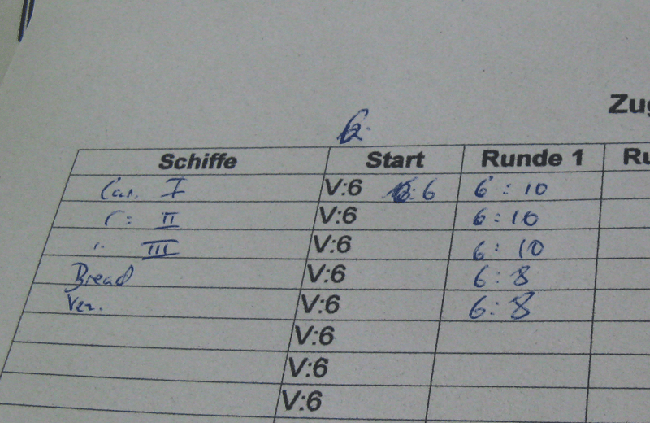 Zug
6:
Schiffe Start Runde 1 Ru
Car. I V:6 6 6:10
" II V:6 6:10
" III V:6 6:10
Bread V:6 6:8
Ver. V:6 6:8
V:6
V:6
V:6